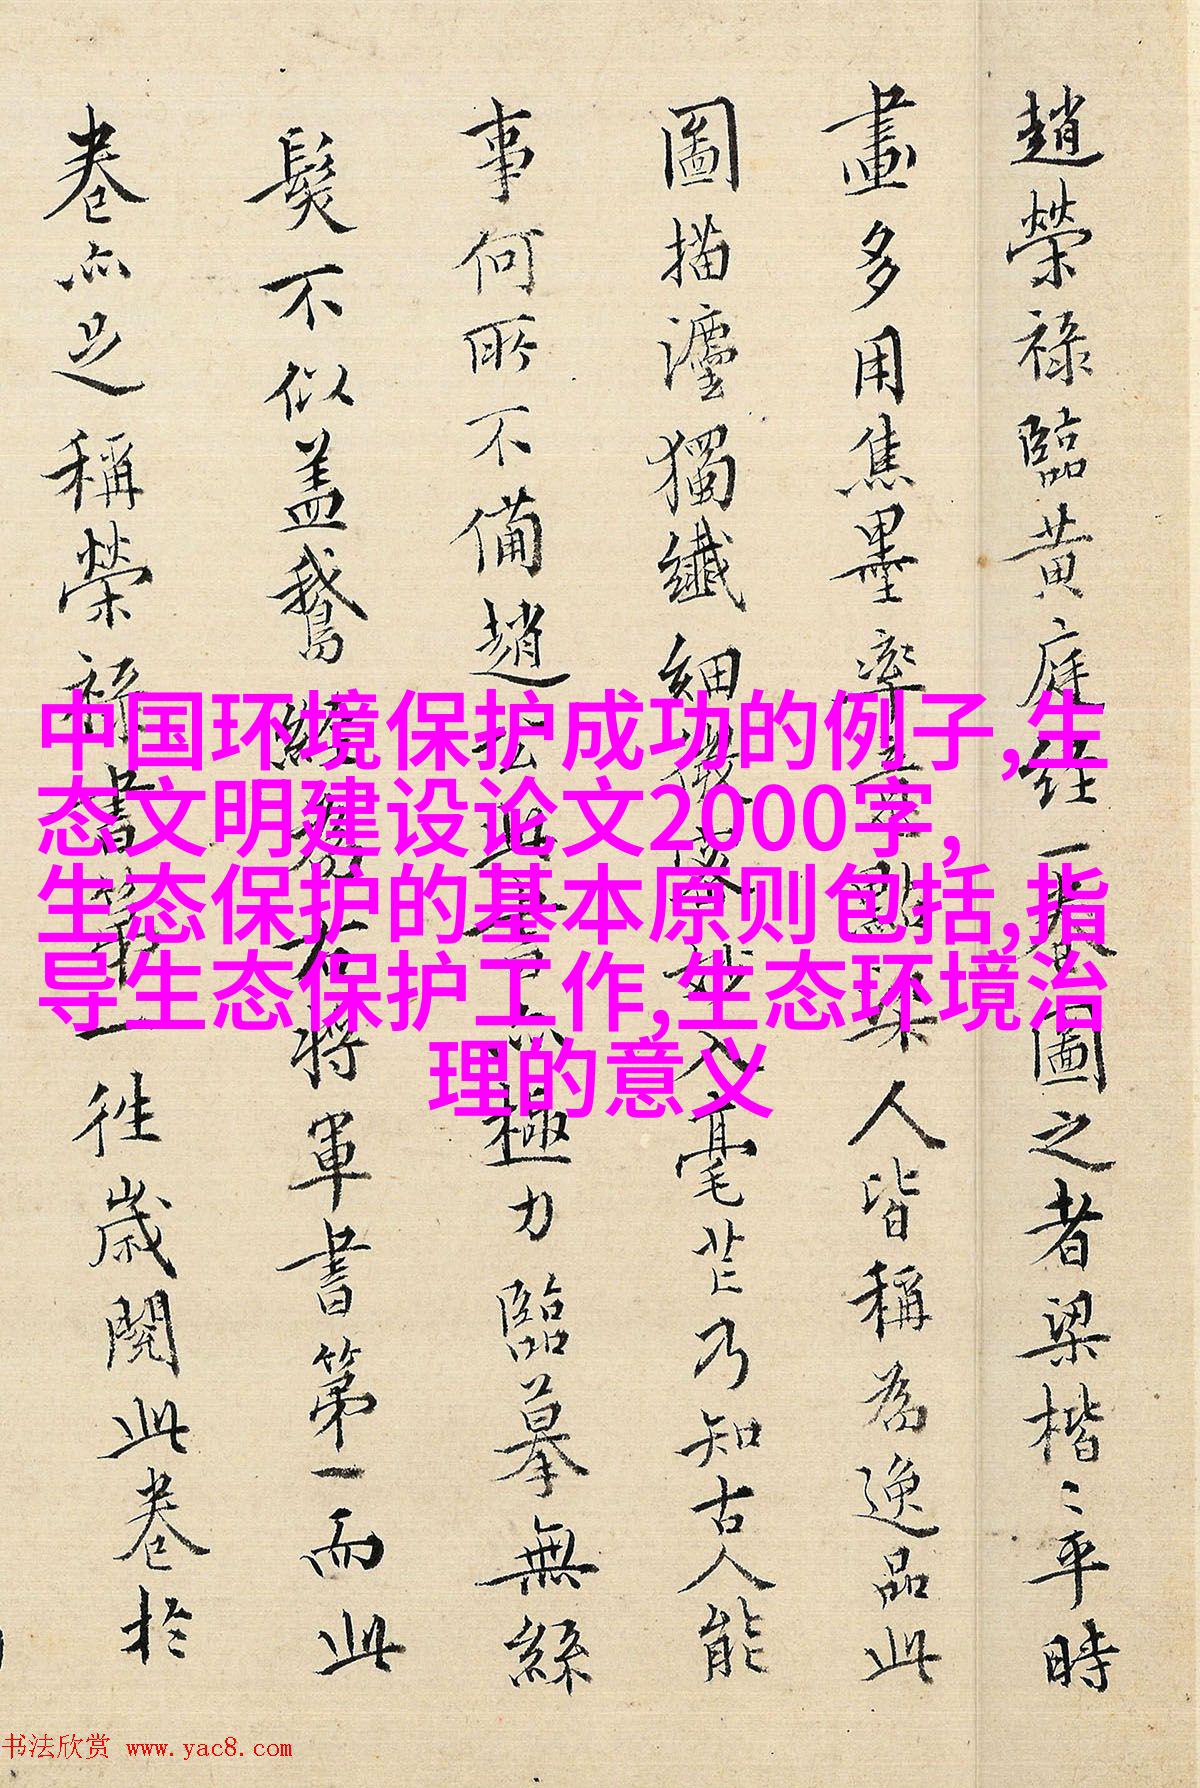 趙榮祿臨黃庭經一卷圖之者梁楷〻平時
畫多用焦墨率意點染人皆稱為逸品此
圖描灋獨纖細微妙入毫芒乃知古人能
事何所不備趙公此書亦極力臨摹無絲
髮不似蓋鵞經為右將軍書第一而此
卷亦足稱榮祿書第一往歲閱此卷於
中国环境保护成功的例子,生
态文明建设论文2000字,
生态保护的基本原则包括,指
导生态保护工作,生态环境治
理的意义
书法欣赏 www.yac8.com